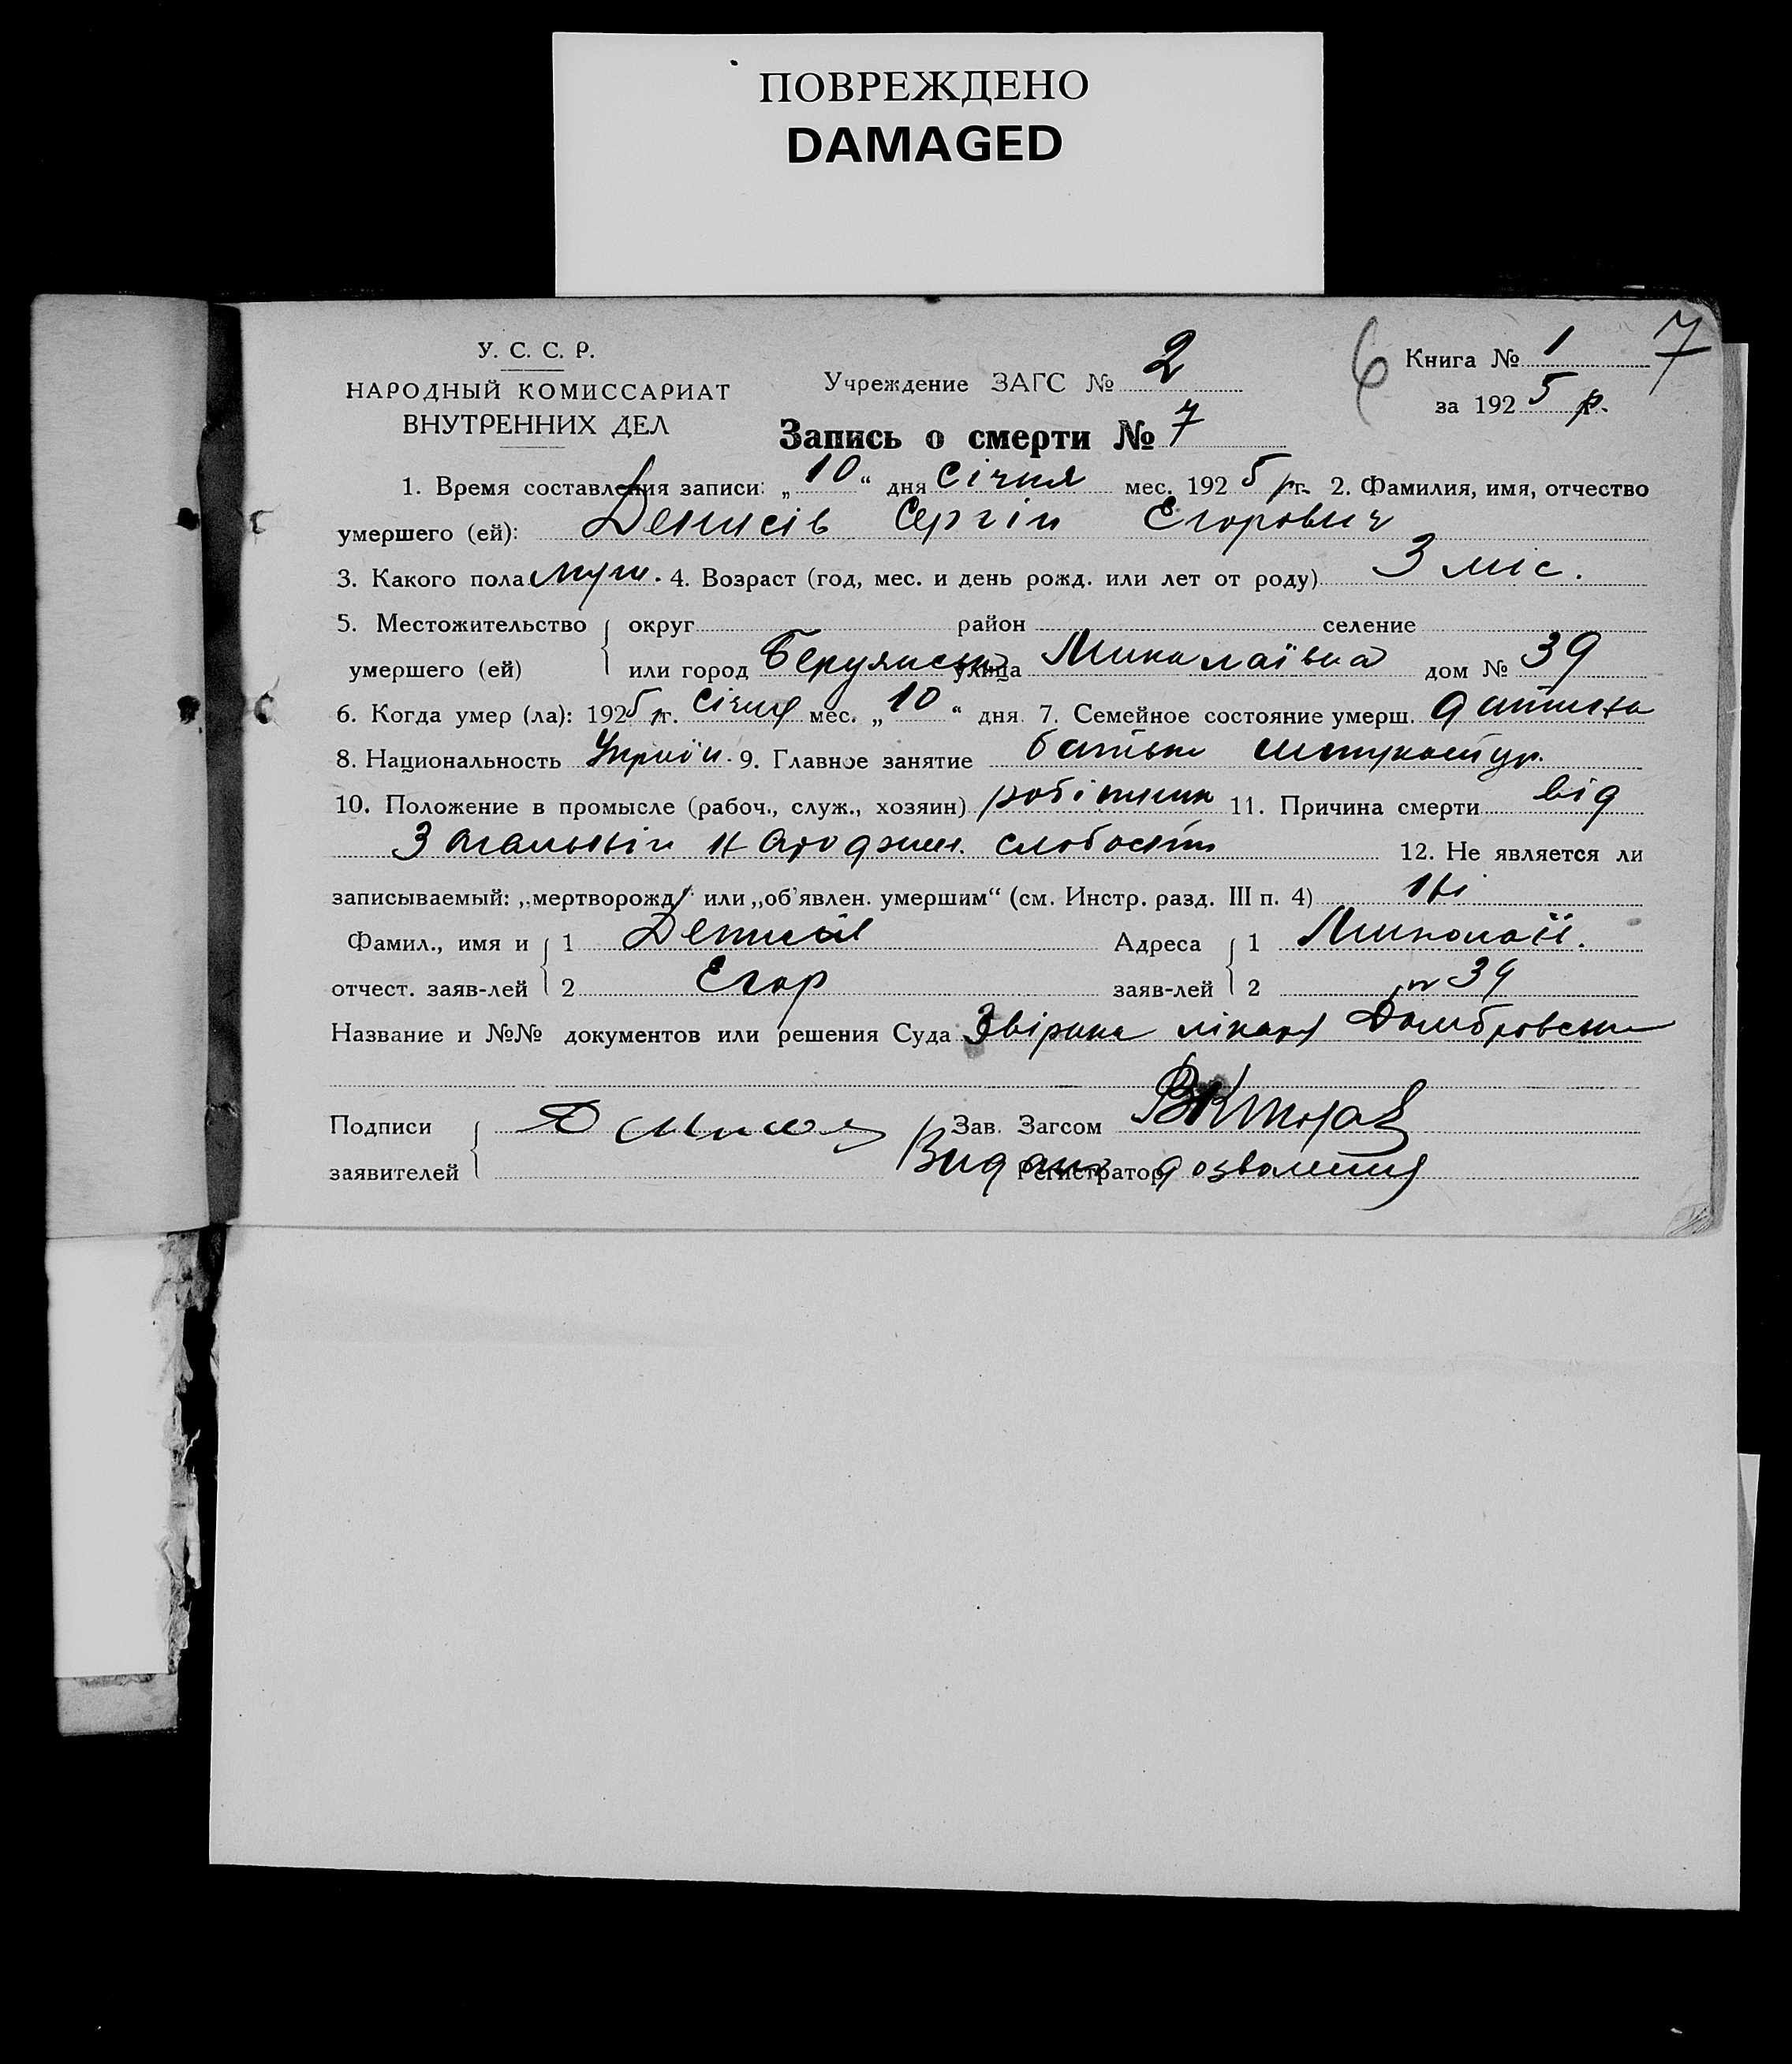 ПОВРЕЖДЕНО
DAMAGED
У. С. С. Р.
НАРОДНЫЙ КОМИССАРИАТ
ВНУТРЕННИХ ДЕЛ
Учреждение ЗАГС № 2
6
Книга № 1
7
за 1925 р.
Запись о смерти № 7
1. Время составления записи: „10“ дня Січня мес. 1925 р. 2. Фамилия, имя, отчество
умершего (ей): Денисів Сергій Егорович
3. Какого пола муж. 4. Возраст (год, мес. и день рожд. или лет от роду) 3 міс.
5. Местожительство округ район селение
умершего (ей) или город Бердянськ улица Миколаївна дом № 39
6. Когда умер (ла): 1925 г. Січня мес. „10“ дня 7. Семейное состояние умерш. дитина
8. Национальность Украї́н. 9. Главное занятие батько штукатур.
10. Положение в промысле (рабоч., служ., хозяин) робітник 11. Причина смерти від
Загальній народжен. слабости 12. Не является ли
записываемый: „мертворожд“ или „об'явлен. умершим“ (см. Инстр. разд. III п. 4) Ні
Фамил., имя и 1 Денисів Адреса 1 Миколаї.
отчест. заяв-лей 2 Егор заяв-лей 2 № 39
Название и №№ документов или решения Суда лікаря Домбровськ
Подписи Зав. Загсом
заявителей Видано Регистратор дозволення